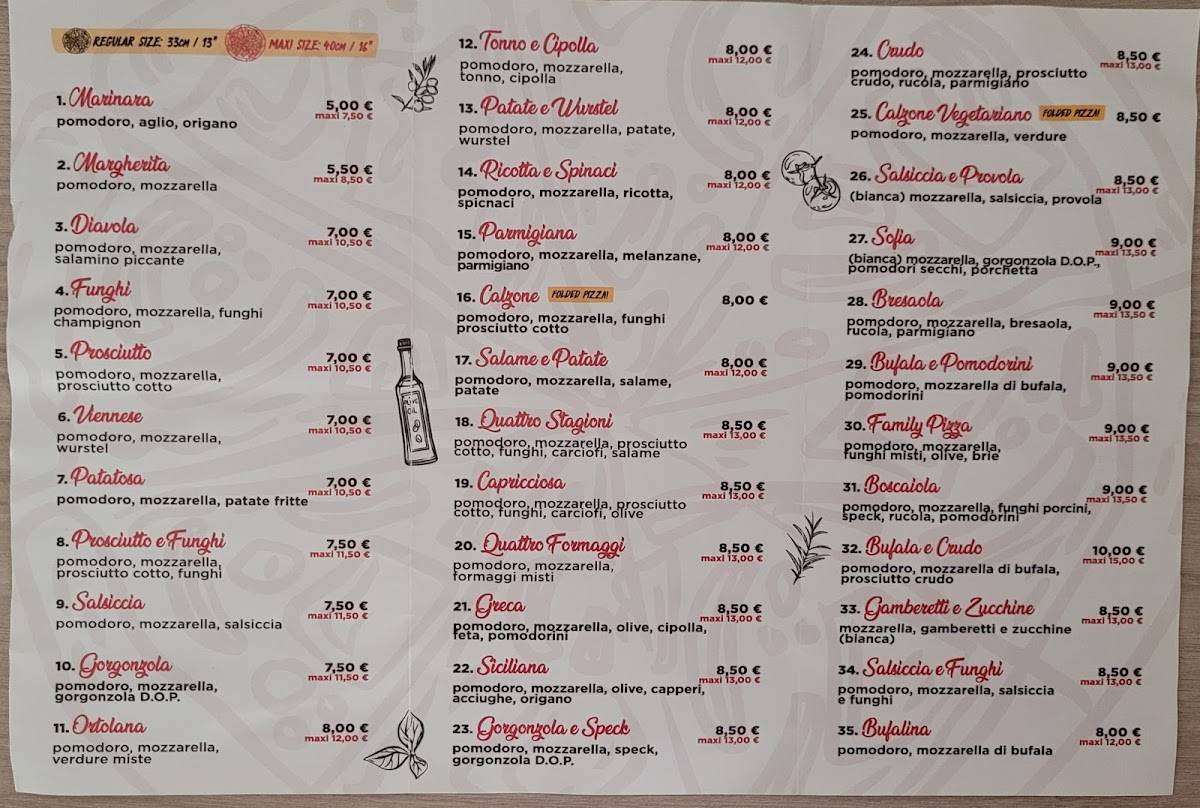 REGULAR SIZE: 33cm / 13" MAXI SIZE: 40cm / 16"
1. Marinara 5,00 €
maxi 7,50 €
pomodoro, aglio, origano
2. Margherita 5,50 €
maxi 8,50 €
pomodoro, mozzarella
3. Diavola 7,00 €
maxi 10,50 €
pomodoro, mozzarella,
salamino piccante
4. Funghi 7,00 €
maxi 10,50 €
pomodoro, mozzarella, funghi
champignon
5. Prosciutto 7,00 €
maxi 10,50 €
pomodoro, mozzarella,
prosciutto cotto
6. Viennese 7,00 €
maxi 10,50 €
pomodoro, mozzarella,
wurstel
7. Patatosa 7,00 €
maxi 10,50 €
pomodoro, mozzarella, patate fritte
8. Prosciutto e Funghi 7,50 €
maxi 11,50 €
pomodoro, mozzarella,
prosciutto cotto, funghi
9. Salsiccia 7,50 €
maxi 11,50 €
pomodoro, mozzarella, salsiccia
10. Gorgonzola 7,50 €
maxi 11,50 €
pomodoro, mozzarella,
gorgonzola D.O.P.
11. Ortolana 8,00 €
maxi 12,00 €
pomodoro, mozzarella,
verdure miste
12. Tonno e Cipolla 8,00 €
maxi 12,00 €
pomodoro, mozzarella,
tonno, cipolla
13. Patate e Wurstel 8,00 €
maxi 12,00 €
pomodoro, mozzarella, patate,
wurstel
14. Ricotta e Spinaci 8,00 €
maxi 12,00 €
pomodoro, mozzarella, ricotta,
spicnaci
15. Parmigiana 8,00 €
maxi 12,00 €
pomodoro, mozzarella, melanzane,
parmigiano
16. Calzone FOLDED PIZZA! 8,00 €
pomodoro, mozzarella, funghi
prosciutto cotto
17. Salame e Patate 8,00 €
maxi 12,00 €
pomodoro, mozzarella, salame,
patate
OLIVE OIL
18. Quattro Stagioni 8,50 €
maxi 13,00 €
pomodoro, mozzarella, prosciutto
cotto, funghi, carciofi, salame
19. Capricciosa 8,50 €
maxi 13,00 €
pomodoro, mozzarella, prosciutto
cotto, funghi, carciofi, olive
20. Quattro Formaggi 8,50 €
maxi 13,00 €
pomodoro, mozzarella,
formaggi misti
21. Greca 8,50 €
maxi 13,00 €
pomodoro, mozzarella, olive, cipolla,
feta, pomodorini
22. Siciliana 8,50 €
maxi 13,00 €
pomodoro, mozzarella, olive, capperi,
acciughe, origano
23. Gorgonzola e Speck 8,50 €
maxi 13,00 €
pomodoro, mozzarella, speck,
gorgonzola D.O.P.
24. Crudo 8,50 €
maxi 13,00 €
pomodoro, mozzarella, prosciutto
crudo, rucola, parmigiano
25. Calzone Vegetariano FOLDED PIZZA! 8,50 €
pomodoro, mozzarella, verdure
26. Salsiccia e Provola 8,50 €
maxi 13,00 €
(bianca) mozzarella, salsiccia, provola
27. Sofia 9,00 €
maxi 13,50 €
(bianca) mozzarella, gorgonzola D.O.P.,
pomodori secchi, porchetta
28. Bresaola 9,00 €
maxi 13,50 €
pomodoro, mozzarella, bresaola,
rucola, parmigiano
29. Bufala e Pomodorini 9,00 €
maxi 13,50 €
pomodoro, mozzarella di bufala,
pomodorini
30. Family Pizza 9,00 €
maxi 13,50 €
pomodoro, mozzarella,
funghi misti, olive, brie
31. Boscaiola 9,00 €
maxi 13,50 €
pomodoro, mozzarella, funghi porcini,
speck, rucola, pomodorini
32. Bufala e Crudo 10,00 €
maxi 15,00 €
pomodoro, mozzarella di bufala,
prosciutto crudo
33. Gamberetti e Zucchine 8,50 €
maxi 13,00 €
mozzarella, gamberetti e zucchine
(bianca)
34. Salsiccia e Funghi 8,50 €
maxi 13,00 €
pomodoro, mozzarella, salsiccia
e funghi
35. Bufalina 8,00 €
maxi 12,00 €
pomodoro, mozzarella di bufala